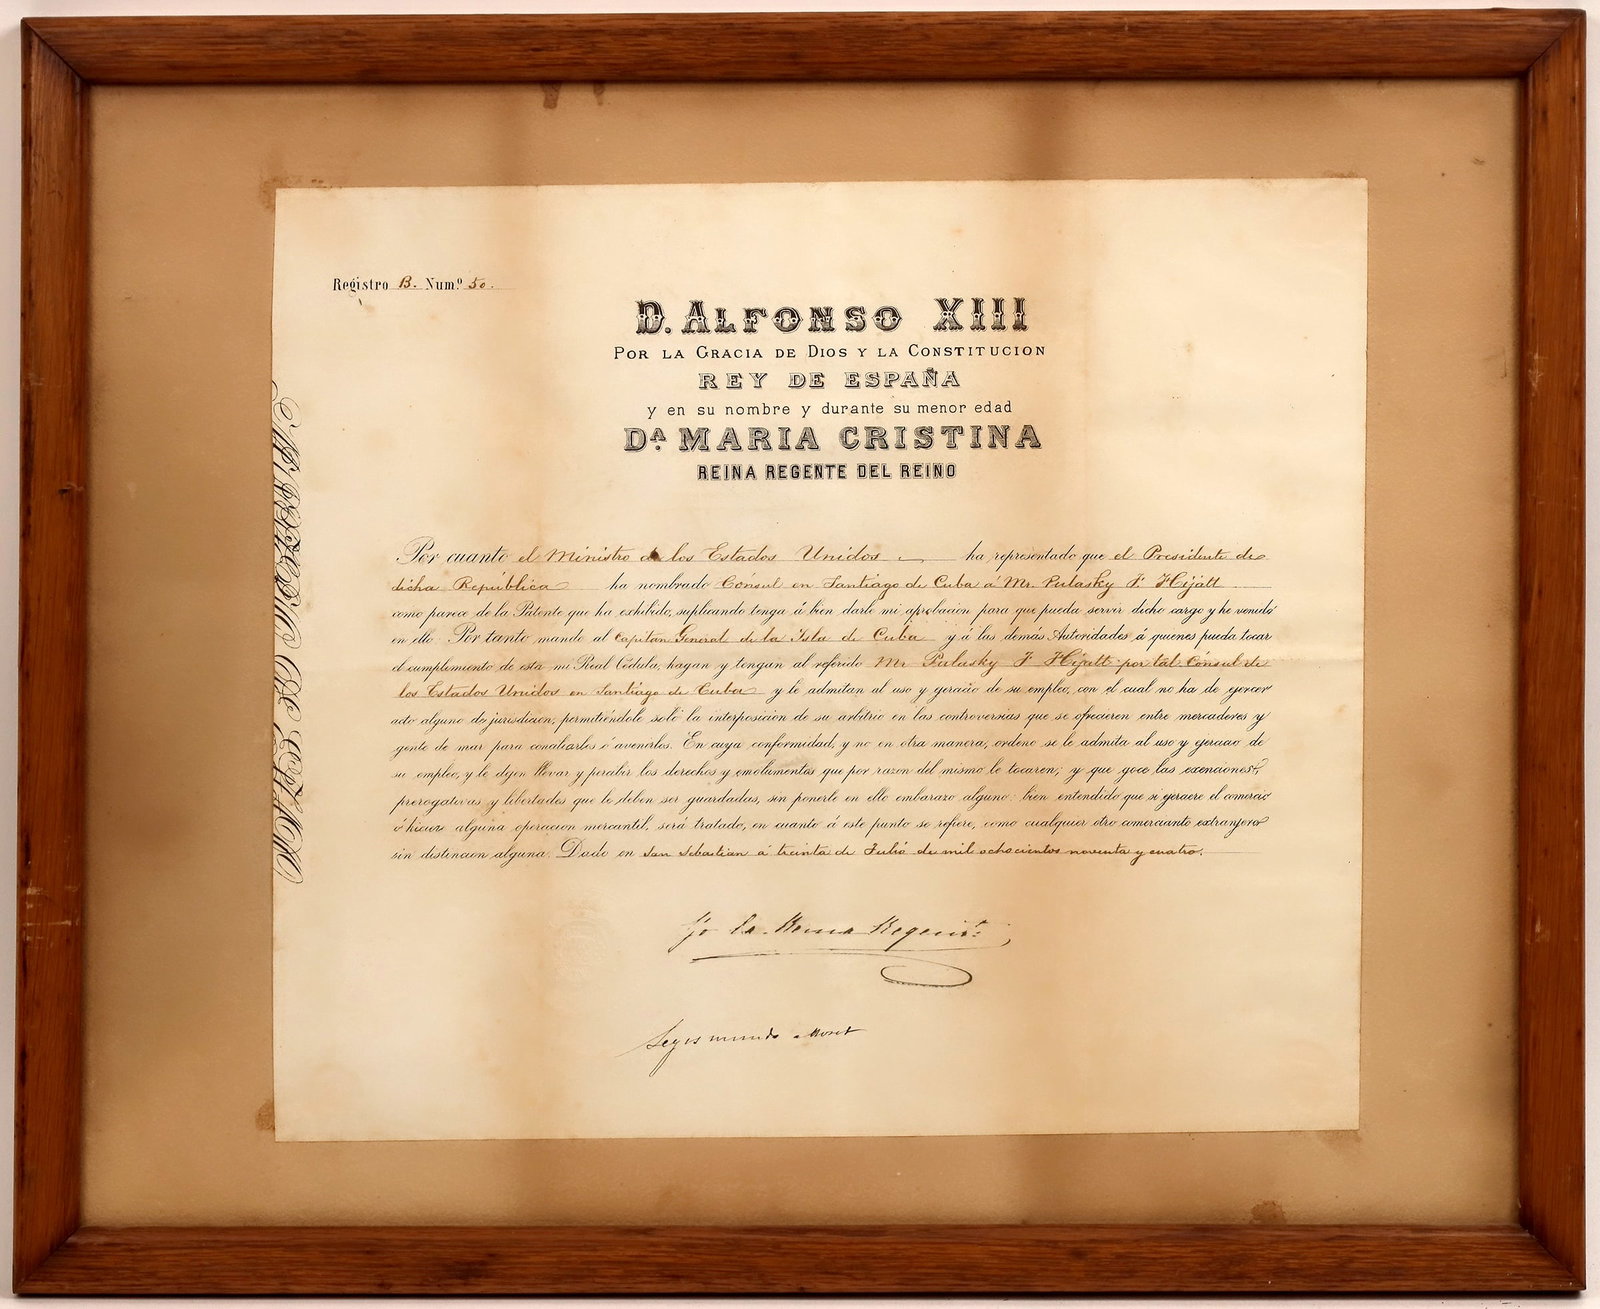 Registro B. Num.º 50.
D. ALFONSO XIII
POR LA GRACIA DE DIOS Y LA CONSTITUCION
REY DE ESPAÑA
y en su nombre y durante su menor edad
Dª MARIA CRISTINA
REINA REGENTE DEL REINO
Por cuanto el Ministro de los Estados Unidos ha representado que el Presidente de
dicha República ha nombrado Consul en Santiago de Cuba á Mr. Pulasky F. Hyatt
como parece de la Patente que ha exhibido, suplicando tenga á bien darle mi aprobacion para que pueda servir dicho cargo y he venido
en ello. Por tanto mando al Capitán General de la Isla de Cuba y á las demás Autoridades á quienes pueda tocar
el cumplimiento de esta mi Real Cédula, hagan y tengan al referido Mr Pulasky F. Hyatt por tal Cónsul de
los Estados Unidos en Santiago de Cuba y le admitan al uso y ejercicio de su empleo, con el cual no ha de ejercer
acto alguno de jurisdiccion, permitiéndole solo la interposicion de su arbitrio en las controversias que se ofrecieren entre mercaderes y
gente de mar para conciliarlos ó avenirlos. En cuya conformidad, y no en otra manera, ordeno se le admita al uso y ejercicio de
su empleo, y le dejen llevar y percibir los derechos y emolumentos que por razon del mismo le tocaren; y que goce las exenciones,
prerogativas y libertades que le deben ser guardadas, sin ponerle en ello embarazo alguno: bien entendido que si ejerciere el comercio
ó hiciere alguna operacion mercantil, será tratado, en cuanto á este punto se refiere, como cualquier otro comerciante extranjero
sin distincion alguna. Dado en San Sebastian á treinta de Julio de mil ochocientos noventa y cuatro.
Yo la Reina Regente
Segismundo Moret